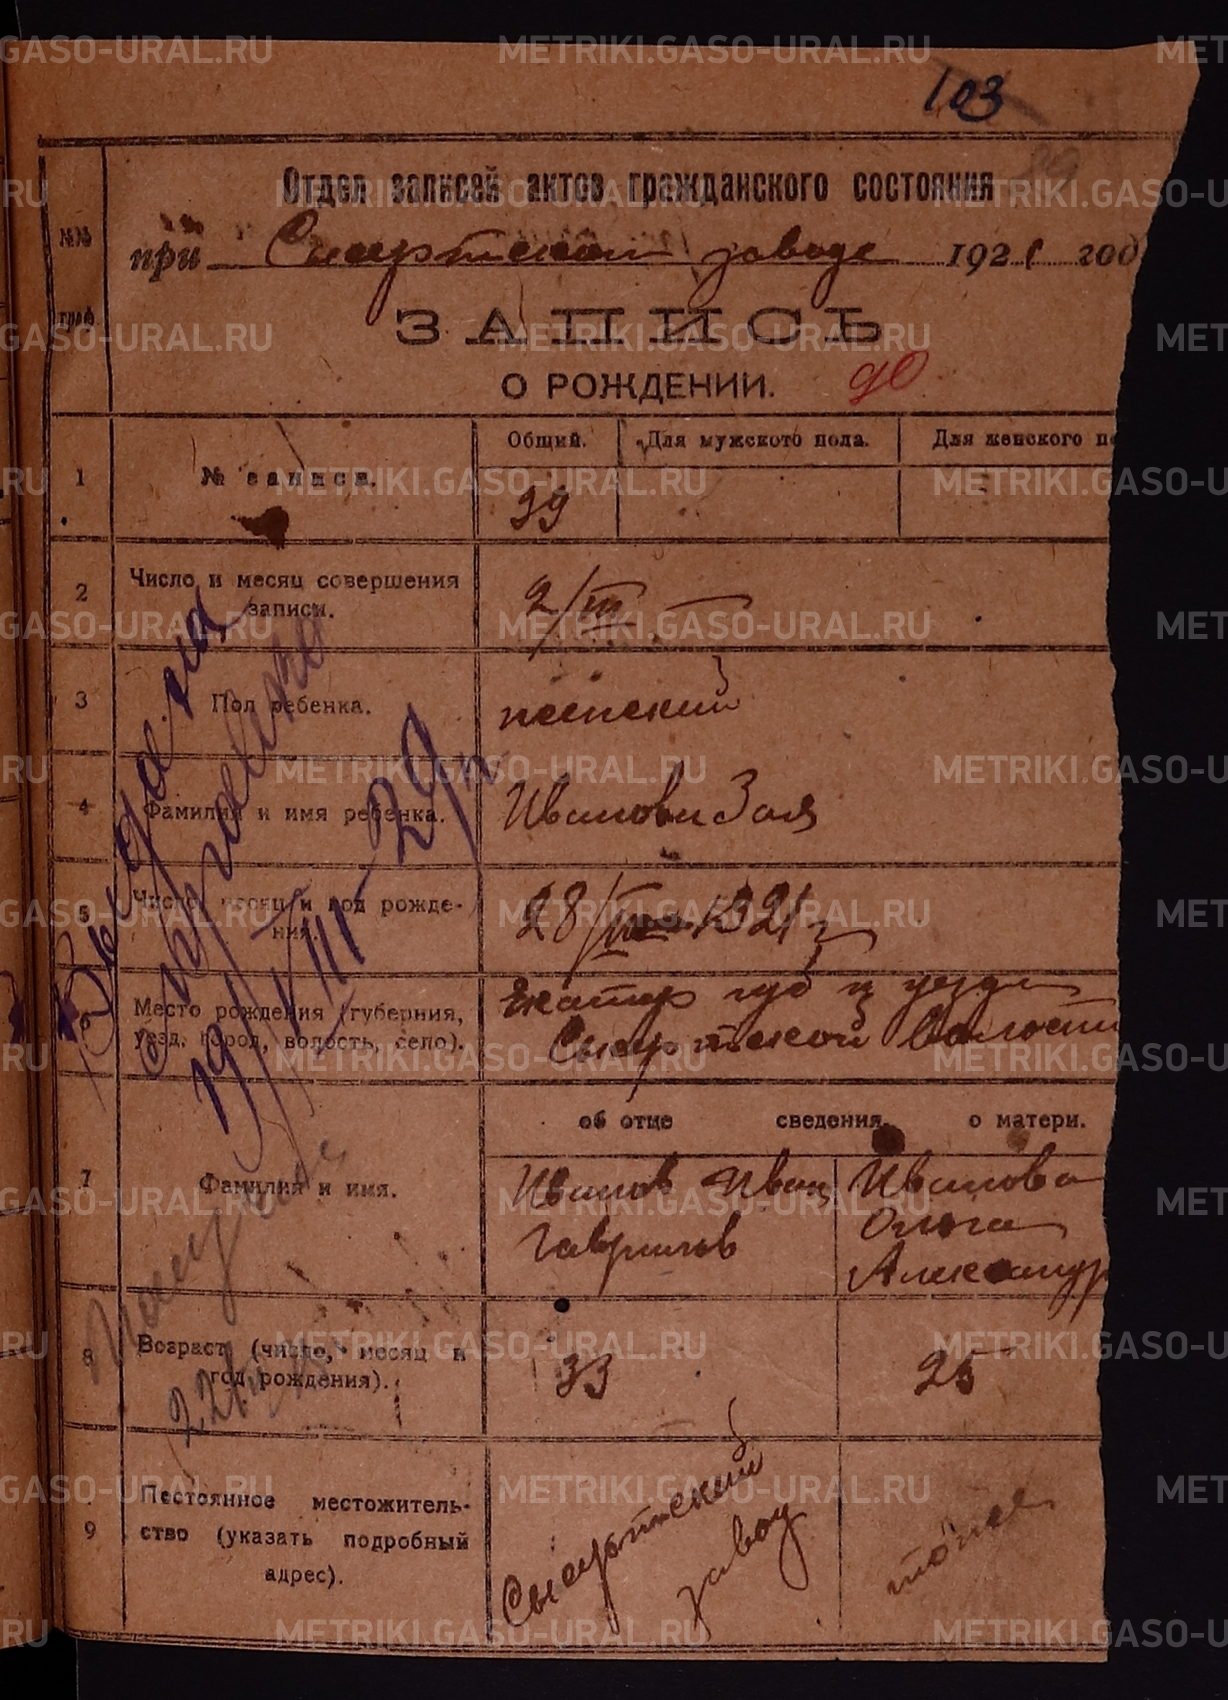 103
Отдел записей актов гражданского состояния
№№ граф.
при Сысертском заводе 1921 год
ЗАПИСЬ
О РОЖДЕНИИ. 90
Общий. Для мужского пола. Для женского по
1 № записи. 39
2 Число и месяц совершения записи. 2/III
3 Пол ребенка. женский
4 Фамилия и имя ребенка. Иванова Зоя
5 Число, месяц и год рождения. 28/ 1921 г
6 Место рождения (губерния, уезд, город, волость, село). Екатер губ и уезда
Сысертской волости
об отце сведения о матери.
7 Фамилия и имя. Иванов Иван Иванова
Гаврилов Ольга
Александр
8 Возраст (число, месяц и год рождения). 33 25
9 Постоянное местожительство (указать подробный адрес). Сысертский завод тоже
Выдана
справка
19/VIII-29
METRIKI.GASO-URAL.RU